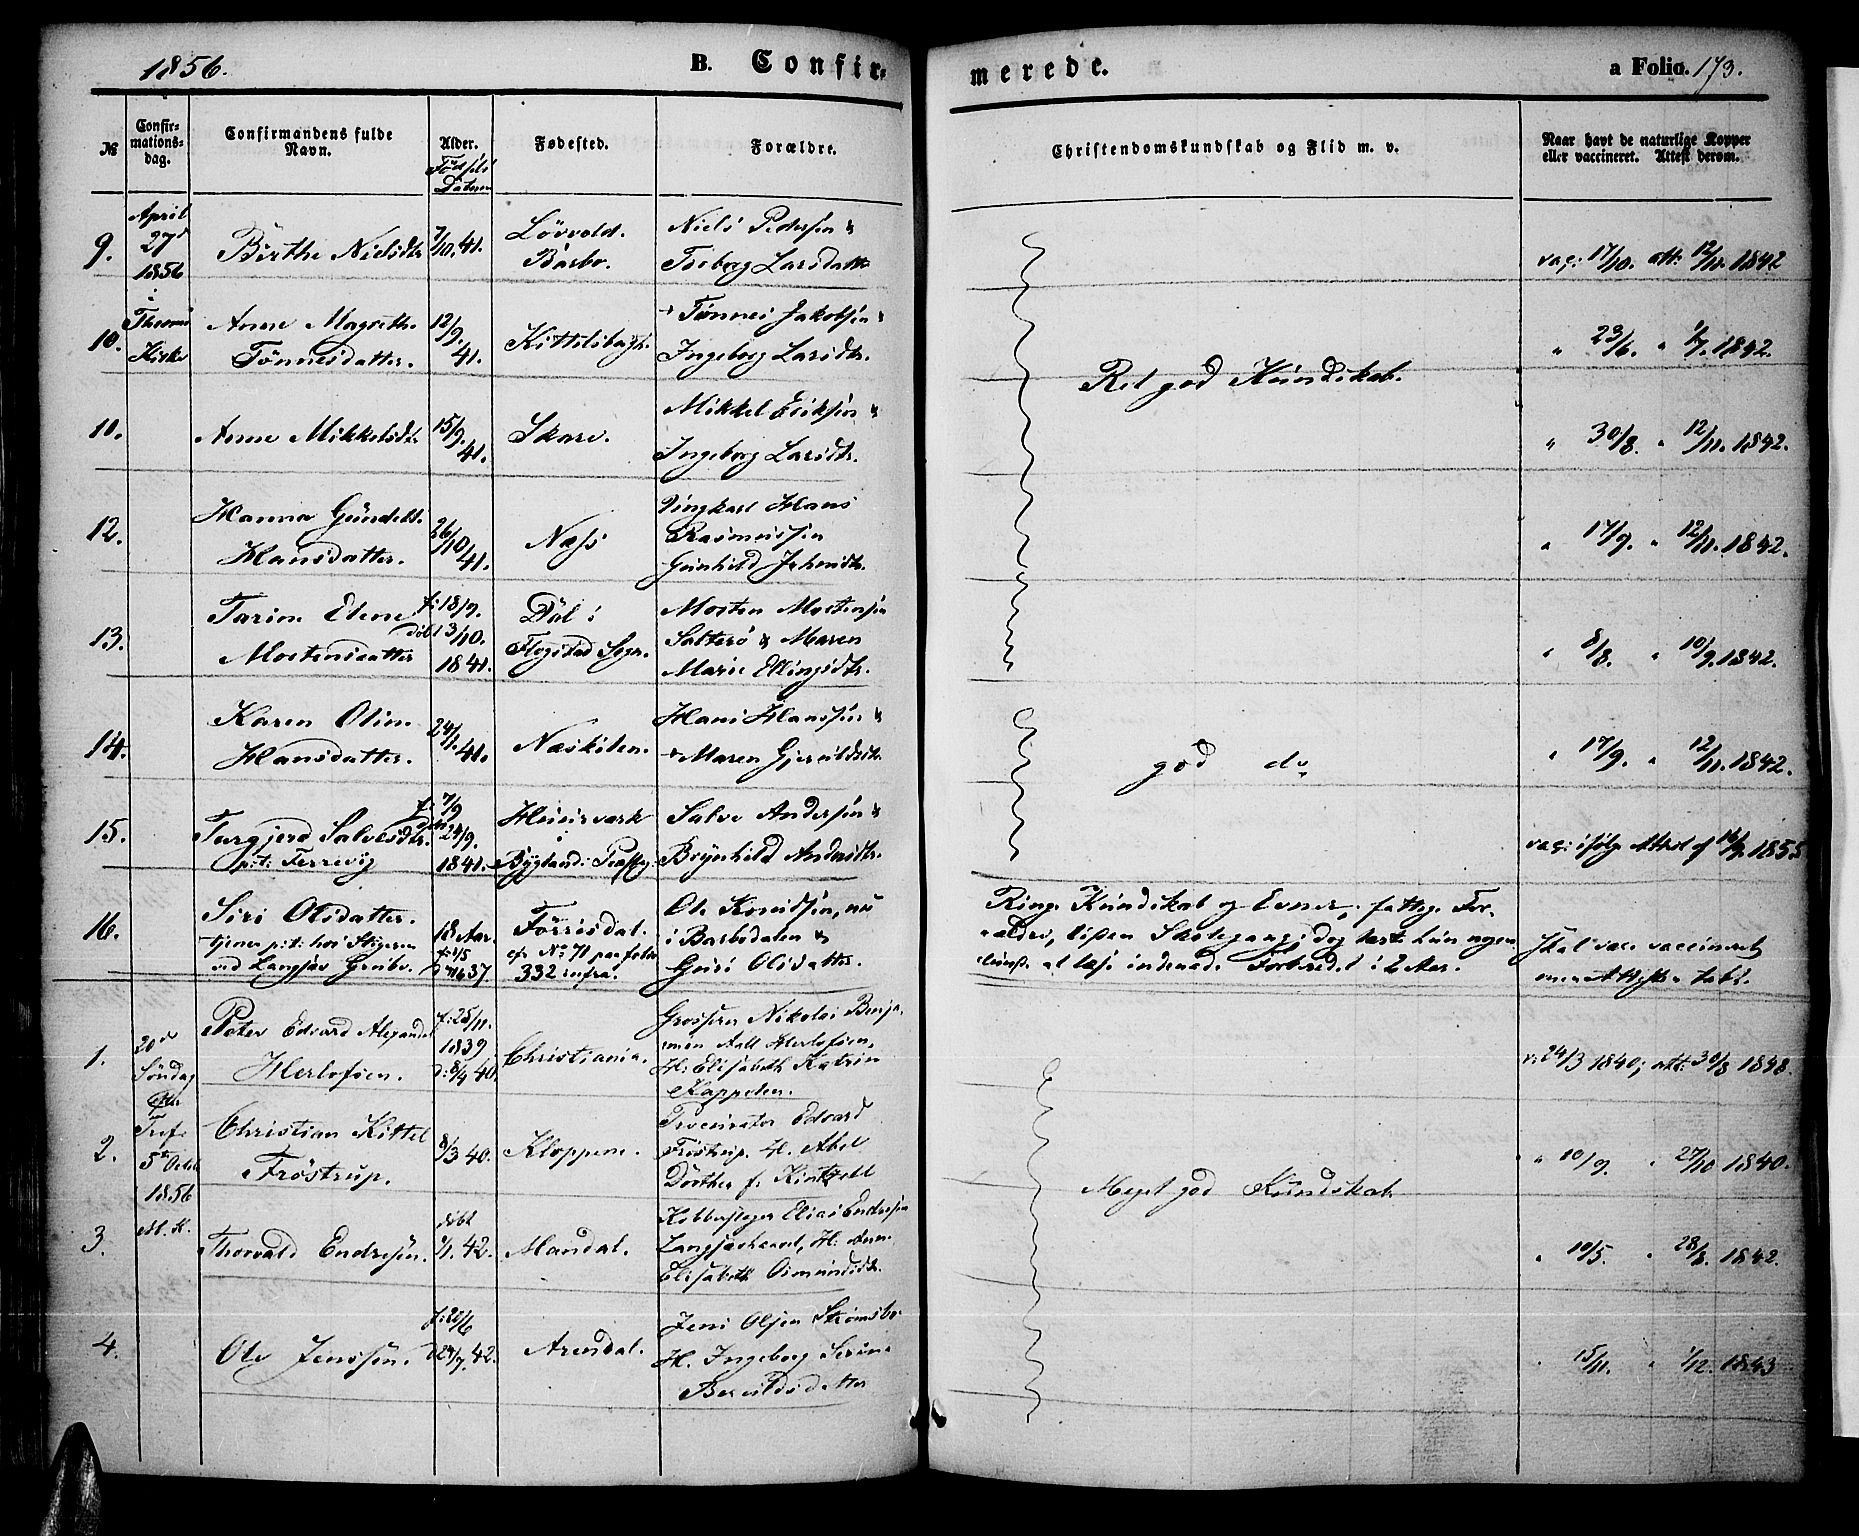 1856.
B. Confir-
merede.
a Folio. 173.
№
Confir-
mations-
dag.
Confirmandens fulde
Navn.
Alder.
Fødsels
Datum
Fødested.
Forældre.
Christendomskundskab og Flid m. v.
Naar havt de naturlige Kopper
eller vaccineret. Attest derom.
9.
April
27de
1856
i
Kirke
Birthe Nielsdtr
7/10. 41.
Løvvold.
Barbo.
Niels Pedersen &
Larsdatter
vac: 17/10. att: 12/11. 1842
10.
Anne Magrethe
Tønnesdatter.
12/9. 41.
+ Tønnes Jakobsen &
Ingeborg Larsdtr.
" 23/6. " 1/7. 1842.
Ret god Kundskab.
11.
Anne Mikkelsdtr.
15/9. 41.
Skare.
Mikkel Eriksen &
Ingeborg Larsdtr.
" 30/8. " 12/11. 1842.
12.
Hanna
Hansdatter.
26/10. 41.
Næss
Hans
Rasmussen
Gunhild
" 17/9. " 12/11. 1842.
13.
Elene
Mortensdatter
f: 18/9.
døbt 3/10.
1841.
i
Sogn.
Morten Mortensen
& Maren
Marie Ellingsdtr.
" 8/8. " 10/9. 1842.
14.
Karen Oline
Hansdatter.
24/11. 41.
Næskilen.
Hans Hanssen &
+ Maren
god do
" 17/9. " 12/11. 1842.
15.
Torgjerd Salvesdtr.
p: t:
f: 7/9
24/9.
1841.
i
Byglands Præstegj.
Salve Andersen &
Brynhild Andersdtr.
vac: ifølge Attest af 1855
16.
Siri Olsdatter.
tjener p: t: hos Stigeren
ved Langsæv Grube.
18 Aar.
37.
Tørrisdal.
cfr No 71 paa folio
332 infra.
Ole Knudsen, nu
i Barbodalen &
Guri Olsdatter.
Ringe Kundskab og Evner, fattige For-
ældre, liden Skolegang; dog lært hun nogen-
lunde at læse indenad. Forberedet i 2 Aar.
Skal være vaccineret
men Attesten tabt.
1.
20de
Søndag
efter
Tref.
5te Octob
1856
M. K.
Peter Edvard Alexander
Herlofsen.
f: 25/11.
1839
d: 8/4 40.
Christiania.
Grosserer Nikolai Benja-
min Aall Herlofsen,
H: Elisabeth Katrine
Kappelen.
v: 24/3 1840; att: 30/3 1848.
2.
Christian Kittel
Frøstrup.
8/3 40.
Kloppene.
Procurator Edvard
Frøstrup. H. Abel
Dorthea f.
" 10/9. " 27/10. 1840.
Meget god Kundskab
3.
Thorvald Endresen.
døbt
1/1. 42.
Mandal.
Kobberslager Elias Endresen
H: Anne
Elisabeth Osmundsdtr.
" 10/5. " 28/8. 1842.
4.
Ole Jenssen.
f: 20/6
d 24/7. 42.
Arendal.
Jens Olsen Strømsbo
H. Ingeborg Serine
Bervildsdatter
" 15/11. " 1/12. 1843